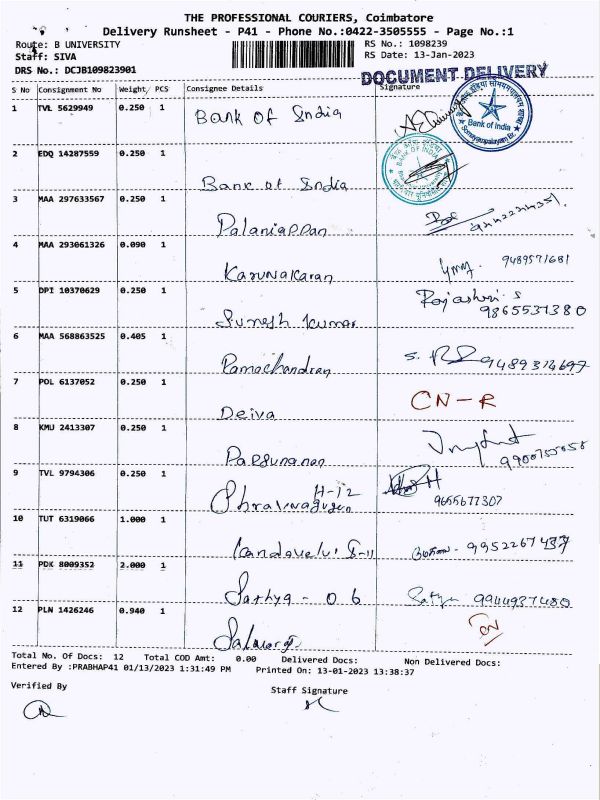 THE PROFESSIONAL COURIERS, Coimbatore
Delivery Runsheet - P41 - Phone No.:0422-3505555 - Page No.:1
Route: B UNIVERSITY
RS No.: 1098239
Staff: SIVA
RS Date: 13-Jan-2023
DRS No.: DCJB109823901
DOCUMENT DELIVERY
S No Consignment No Weight/ PCS Consignee Details Signature
1 TVL 5629949 0.250 1 Bank of India
Bank of India
2 EDQ 14287559 0.250 1 Bank of India
BANK OF INDIA
3 MAA 297633567 0.250 1 Palaniappan
4 MAA 293061326 0.090 1 Karunakaran 9489571681
5 DPI 10370629 0.250 1 Suresh Kumar Rajashri. S 9865531380
6 MAA 568863525 0.405 1 Ramachandran
7 POL 6137052 0.250 1 Deiva CN-R
8 KMU 2413307 0.250 1
9 TVL 9794306 0.250 1 H-12 9655677307
10 TUT 6319066 1.000 1 Kandavelu
11 PDK 8009352 2.000 1 Sathya - 06 Sathya 9944937480
12 PLN 1426246 0.940 1 CN
Total No. Of Docs: 12 Total COD Amt: 0.00 Delivered Docs: Non Delivered Docs:
Entered By :PRABHAP41 01/13/2023 1:31:49 PM Printed On: 13-01-2023 13:38:37
Verified By
Staff Signature